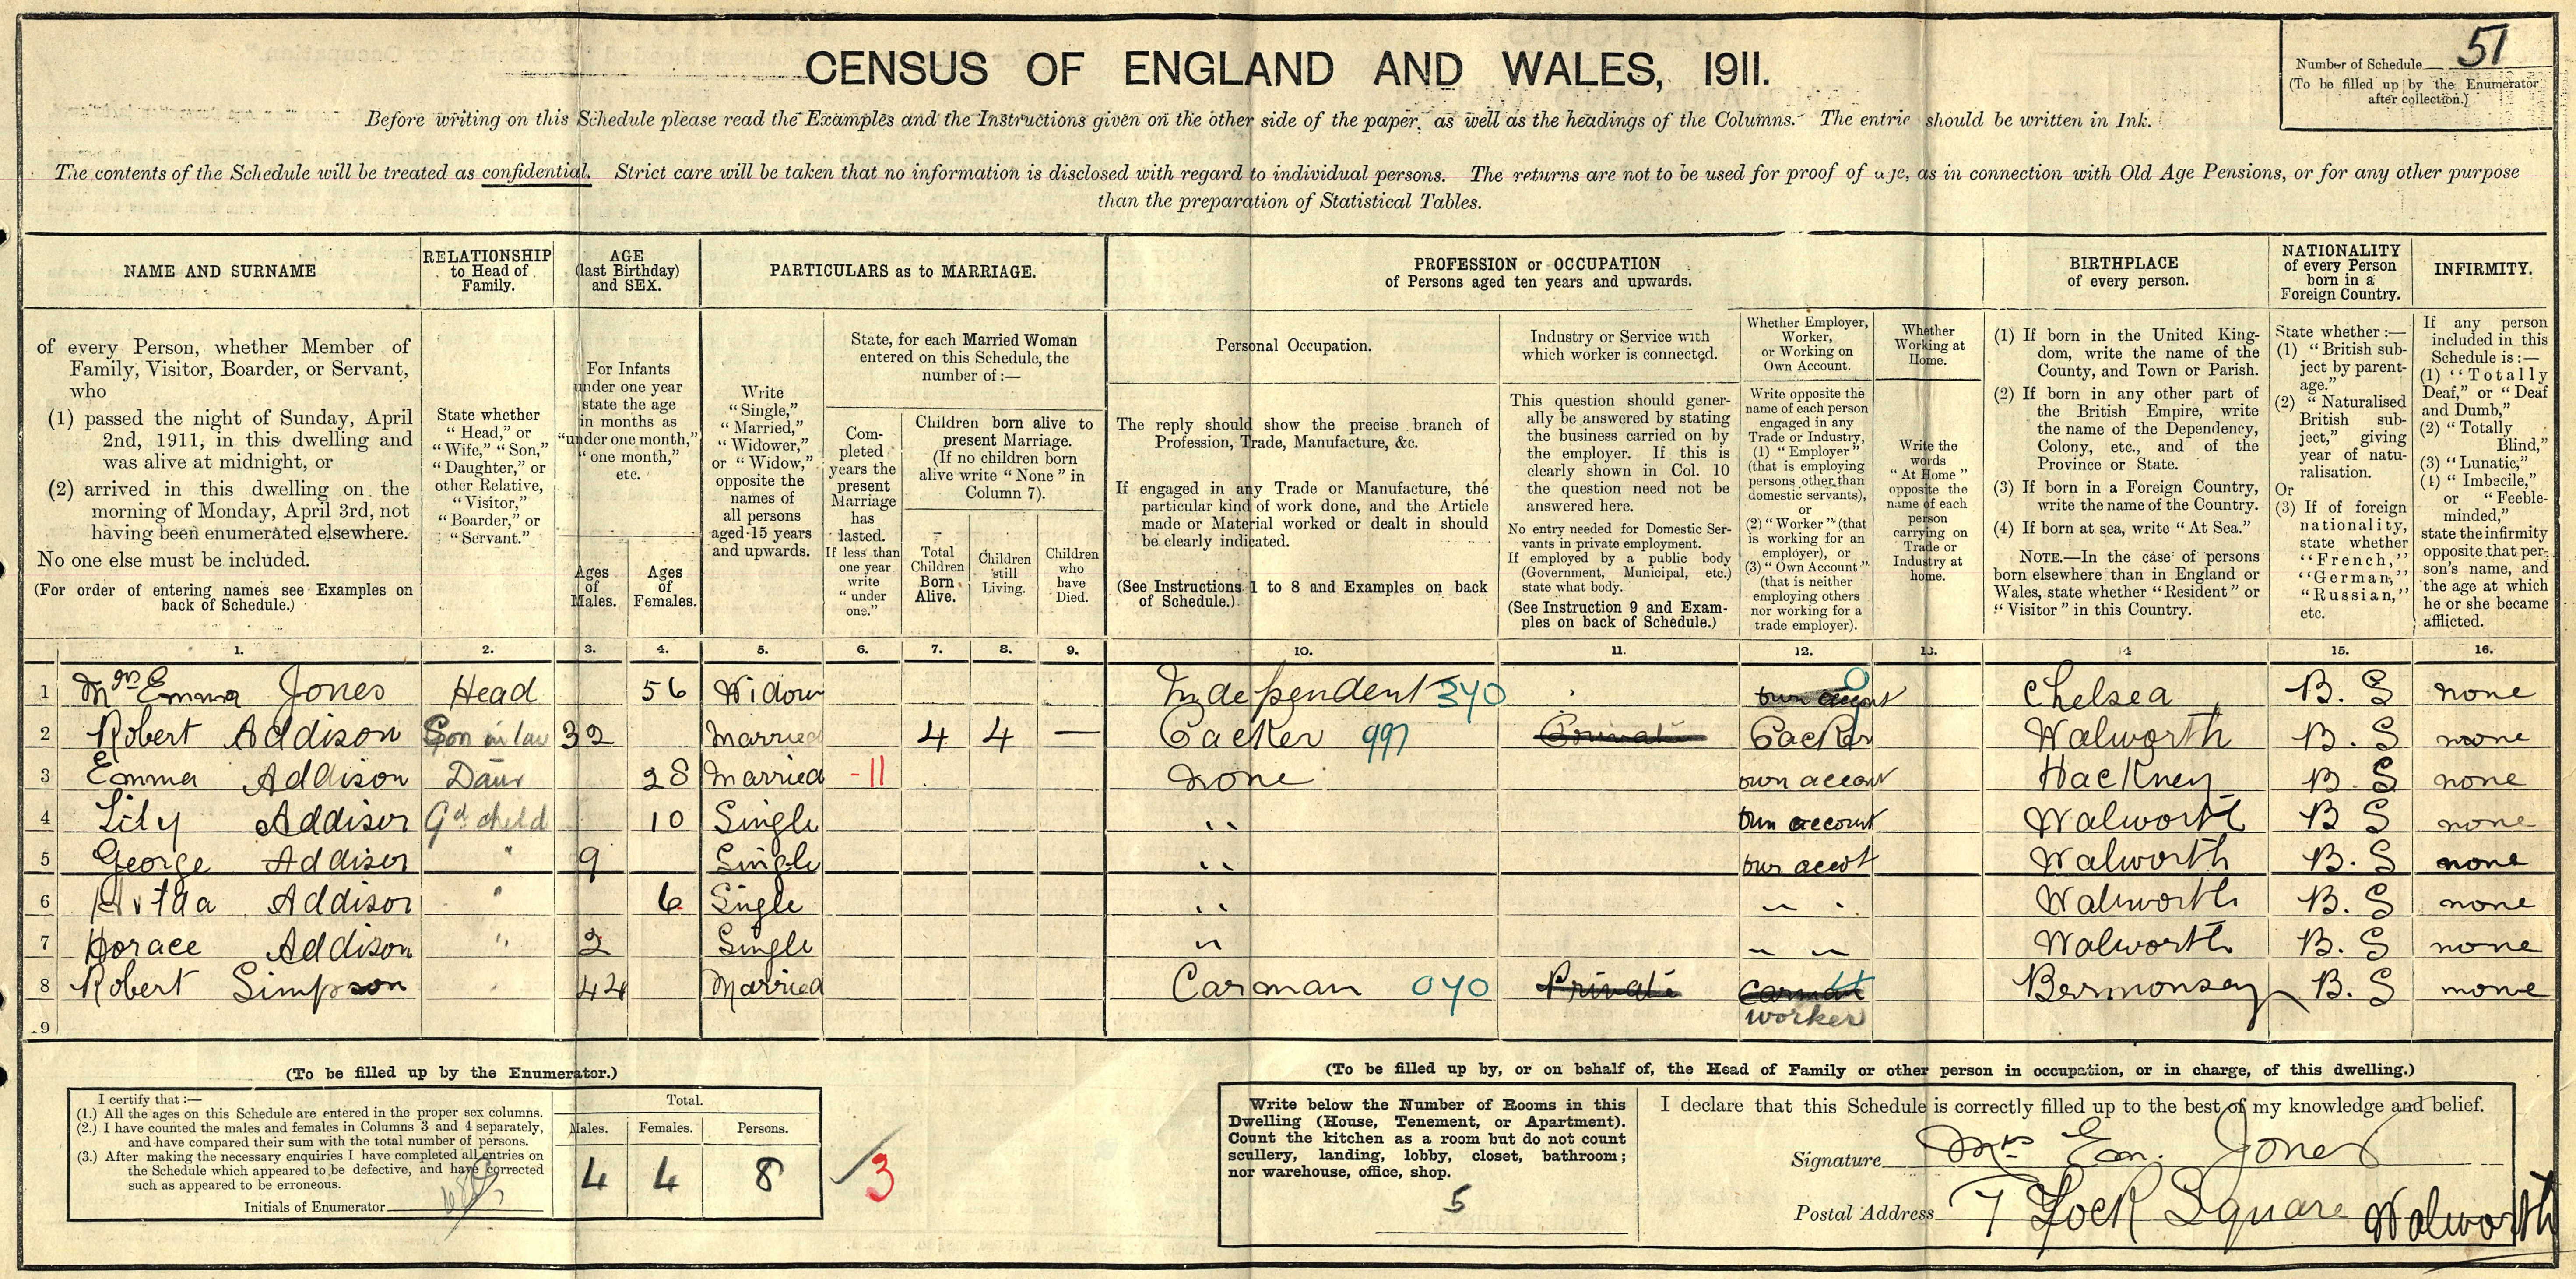 CENSUS OF ENGLAND AND WALES, 1911.
Number of Schedule 51
(To be filled up by the Enumerator
after collection.)
Before writing on this Schedule please read the Examples and the Instructions given on the other side of the paper, as well as the headings of the Columns. The entrie should be written in Ink.
The contents of the Schedule will be treated as confidential. Strict care will be taken that no information is disclosed with regard to individual persons. The returns are not to be used for proof of age, as in connection with Old Age Pensions, or for any other purpose
than the preparation of Statistical Tables.
NAME AND SURNAME
of every Person, whether Member of
Family, Visitor, Boarder, or Servant,
who
(1) passed the night of Sunday, April
2nd, 1911, in this dwelling and
was alive at midnight, or
(2) arrived in this dwelling on the
morning of Monday, April 3rd, not
having been enumerated elsewhere.
No one else must be included.
(For order of entering names see Examples on
back of Schedule.)
RELATIONSHIP
to Head of
Family.
State whether
"Head," or
"Wife," "Son,"
"Daughter," or
other Relative,
"Visitor,"
"Boarder," or
"Servant."
AGE
(last Birthday)
and SEX.
For Infants
under one year
state the age
in months as
"under one month,"
"one month,"
etc.
Ages
of
Males.
Ages
of
Females.
PARTICULARS as to MARRIAGE.
Write
"Single,"
"Married,"
"Widower,"
or "Widow,"
opposite the
names of
all persons
aged 15 years
and upwards.
State, for each Married Woman
entered on this Schedule, the
number of:—
Com-
pleted
years the
present
Marriage
has
lasted.
If less than
one year
write
"under
one."
Children born alive to
present Marriage.
(If no children born
alive write "None" in
Column 7).
Total
Children
Born
Alive.
Children
still
Living.
Children
who
have
Died.
PROFESSION or OCCUPATION
of Persons aged ten years and upwards.
Personal Occupation.
The reply should show the precise branch of
Profession, Trade, Manufacture, &c.
If engaged in any Trade or Manufacture, the
particular kind of work done, and the Article
made or Material worked or dealt in should
be clearly indicated.
(See Instructions 1 to 8 and Examples on back
of Schedule.)
Industry or Service with
which worker is connected.
This question should gener-
ally be answered by stating
the business carried on by
the employer. If this is
clearly shown in Col. 10
the question need not be
answered here.
No entry needed for Domestic Ser-
vants in private employment.
If employed by a public body
(Government, Municipal, etc.)
state what body.
(See Instruction 9 and Exam-
ples on back of Schedule.)
Whether Employer,
Worker,
or Working on
Own Account.
Write opposite the
name of each person
engaged in any
Trade or Industry,
(1) "Employer"
(that is employing
persons other than
domestic servants),
or
(2) "Worker" (that
is working for an
employer), or
(3) "Own Account"
(that is neither
employing others
nor working for a
trade employer).
Whether
Working at
Home.
Write the
words
"At Home"
opposite the
name of each
person
carrying on
Trade or
Industry at
home.
BIRTHPLACE
of every person.
(1) If born in the United King-
dom, write the name of the
County, and Town or Parish.
(2) If born in any other part of
the British Empire, write
the name of the Dependency,
Colony, etc., and of the
Province or State.
(3) If born in a Foreign Country,
write the name of the Country.
(4) If born at sea, write "At Sea."
NOTE.—In the case of persons
born elsewhere than in England or
Wales, state whether "Resident" or
"Visitor" in this Country.
NATIONALITY
of every Person
born in a
Foreign Country.
State whether:—
(1) "British sub-
ject by parent-
age."
(2) "Naturalised
British sub-
ject," giving
year of natu-
ralisation.
Or
(3) If of foreign
nationality,
state whether
"French,"
"German,"
"Russian,"
etc.
INFIRMITY.
If any person
included in this
Schedule is:—
(1) "Totally
Deaf," or "Deaf
and Dumb,"
(2) "Totally
Blind,"
(3) "Lunatic,"
(4) "Imbecile,"
or "Feeble-
minded,"
state the infirmity
opposite that per-
son's name, and
the age at which
he or she became
afflicted.
1. 2. 3. 4. 5. 6. 7. 8. 9. 10. 11. 12. 13. 14 15. 16.
1 Mrs Emma Jones Head 56 Widow Independent 340 own account Chelsea B. S none
2 Robert Addison Son in law 32 Married 4 4 — Packer 997 Private Packer Walworth B. S none
3 Emma Addison Daur 28 Married -11 none own account Hackney B. S none
4 Lily Addison Gd child 10 Single " own account Walworth B S none
5 George Addison " 9 Single " our accot Walworth B. S none
6 Addison " 6 Single " " Walworth B. S none
7 Horace Addison " 2 Single " " " Walworth B. S none
8 Robert Simpson 44 Married Carman 040 Private Carman Bermonsey B. S none
9 worker
(To be filled up by the Enumerator.)
I certify that:—
(1.) All the ages on this Schedule are entered in the proper sex columns.
(2.) I have counted the males and females in Columns 3 and 4 separately,
and have compared their sum with the total number of persons.
(3.) After making the necessary enquiries I have completed all entries on
the Schedule which appeared to be defective, and have corrected
such as appeared to be erroneous.
Initials of Enumerator
Total.
Males. Females. Persons.
4 4 8 3
(To be filled up by, or on behalf of, the Head of Family or other person in occupation, or in charge, of this dwelling.)
Write below the Number of Rooms in this
Dwelling (House, Tenement, or Apartment).
Count the kitchen as a room but do not count
scullery, landing, lobby, closet, bathroom;
nor warehouse, office, shop.
5
I declare that this Schedule is correctly filled up to the best of my knowledge and belief.
Signature Mrs Em. Jones
Postal Address 7 Lock Square Walworth